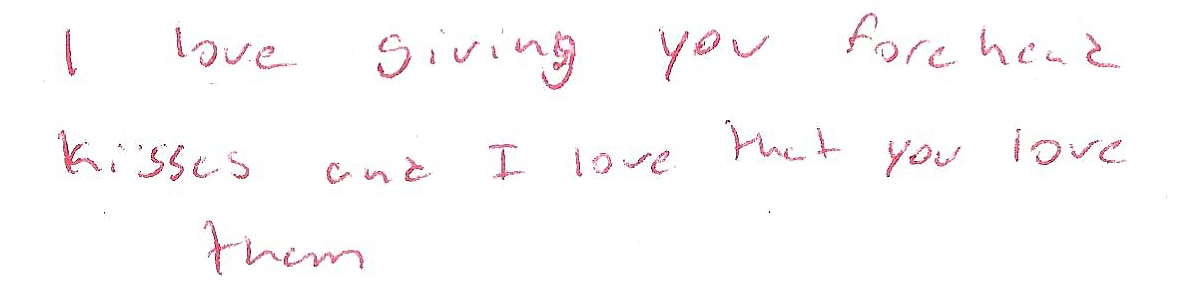 I love giving you forehead
kisses and I love that you love
them